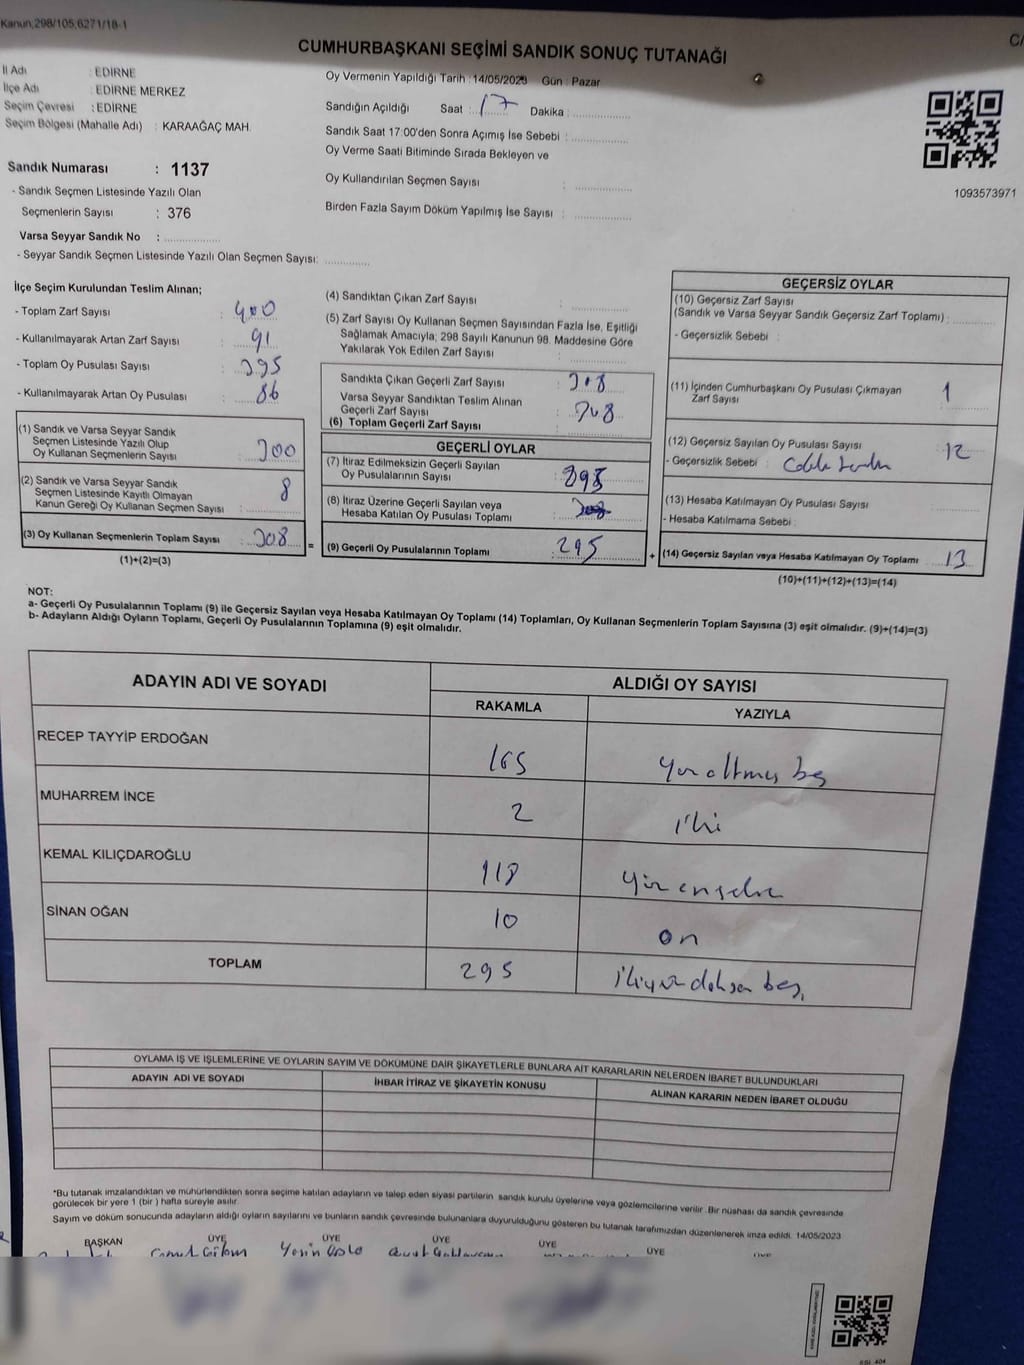 Kanun;298/105,6271/18-1
C/
CUMHURBAŞKANI SEÇİMİ SANDIK SONUÇ TUTANAĞI
İl Adı : EDİRNE
İlçe Adı : EDİRNE MERKEZ
Seçim Çevresi : EDİRNE
Seçim Bölgesi (Mahalle Adı) : KARAAĞAÇ MAH.
Sandık Numarası : 1137
- Sandık Seçmen Listesinde Yazılı Olan
Seçmenlerin Sayısı : 376
Varsa Seyyar Sandık No :
- Seyyar Sandık Seçmen Listesinde Yazılı Olan Seçmen Sayısı:
Oy Vermenin Yapıldığı Tarih : 14/05/2023 Gün : Pazar
Sandığın Açıldığı Saat : 17 Dakika :
Sandık Saat 17:00'den Sonra Açımış İse Sebebi :
Oy Verme Saati Bitiminde Sırada Bekleyen ve
Oy Kullandırılan Seçmen Sayısı :
Birden Fazla Sayım Döküm Yapılmış İse Sayısı :
1093573971
İlçe Seçim Kurulundan Teslim Alınan;
- Toplam Zarf Sayısı : 400
- Kullanılmayarak Artan Zarf Sayısı : 91
- Toplam Oy Pusulası Sayısı : 395
- Kullanılmayarak Artan Oy Pusulası : 86
(1) Sandık ve Varsa Seyyar Sandık
Seçmen Listesinde Yazılı Olup
Oy Kullanan Seçmenlerin Sayısı : 300
(2) Sandık ve Varsa Seyyar Sandık
Seçmen Listesinde Kayıtlı Olmayan
Kanun Gereği Oy Kullanan Seçmen Sayısı : 8
(3) Oy Kullanan Seçmenlerin Toplam Sayısı : 308
(1)+(2)=(3)
=
(4) Sandıktan Çıkan Zarf Sayısı :
(5) Zarf Sayısı Oy Kullanan Seçmen Sayısından Fazla İse, Eşitliği
Sağlamak Amacıyla; 298 Sayılı Kanunun 98. Maddesine Göre
Yakılarak Yok Edilen Zarf Sayısı :
Sandıkta Çıkan Geçerli Zarf Sayısı : 308
Varsa Seyyar Sandıktan Teslim Alınan
Geçerli Zarf Sayısı
(6) Toplam Geçerli Zarf Sayısı : 308
GEÇERLİ OYLAR
(7) İtiraz Edilmeksizin Geçerli Sayılan
Oy Pusulalarının Sayısı : 295
(8) İtiraz Üzerine Geçerli Sayılan veya
Hesaba Katılan Oy Pusulası Toplamı
(9) Geçerli Oy Pusulalarının Toplamı : 295
+
GEÇERSİZ OYLAR
(10) Geçersiz Zarf Sayısı
(Sandık ve Varsa Seyyar Sandık Geçersiz Zarf Toplamı) :
- Geçersizlik Sebebi :
(11) İçinden Cumhurbaşkanı Oy Pusulası Çıkmayan
Zarf Sayısı : 1
(12) Geçersiz Sayılan Oy Pusulası Sayısı : 12
- Geçersizlik Sebebi :
(13) Hesaba Katılmayan Oy Pusulası Sayısı :
- Hesaba Katılmama Sebebi :
(14) Geçersiz Sayılan veya Hesaba Katılmayan Oy Toplamı : 13
(10)+(11)+(12)+(13)=(14)
NOT:
a- Geçerli Oy Pusulalarının Toplamı (9) ile Geçersiz Sayılan veya Hesaba Katılmayan Oy Toplamı (14) Toplamları, Oy Kullanan Seçmenlerin Toplam Sayısına (3) eşit olmalıdır. (9)+(14)=(3)
b- Adayların Aldığı Oyların Toplamı, Geçerli Oy Pusulalarının Toplamına (9) eşit olmalıdır.
ADAYIN ADI VE SOYADI ALDIĞI OY SAYISI
RAKAMLA YAZIYLA
RECEP TAYYİP ERDOĞAN 165 yüz altmış beş
MUHARREM İNCE 2 iki
KEMAL KILIÇDAROĞLU 118 yüz onsekiz
SİNAN OĞAN 10 on
TOPLAM 295 ikiyüz doksan beş
OYLAMA İŞ VE İŞLEMLERİNE VE OYLARIN SAYIM VE DÖKÜMÜNE DAİR ŞİKAYETLERLE BUNLARA AİT KARARLARIN NELERDEN İBARET BULUNDUKLARI
ADAYIN ADI VE SOYADI İHBAR İTİRAZ VE ŞİKAYETİN KONUSU ALINAN KARARIN NEDEN İBARET OLDUĞU
*Bu tutanak imzalandıktan ve mühürlendikten sonra seçime katılan adayların ve talep eden siyasi partilerin sandık kurulu üyelerine veya gözlemcilerine verilir. Bir nüshası da sandık çevresinde
görülecek bir yere 1 (bir ) hafta süreyle asılır.
Sayım ve döküm sonucunda adayların aldığı oyların sayılarını ve bunların sandık çevresinde bulunanlara duyurulduğunu gösteren bu tutanak tarafımızdan düzenlenerek imza edildi. 14/05/2023
BAŞKAN ÜYE ÜYE ÜYE ÜYE ÜYE ÜYE